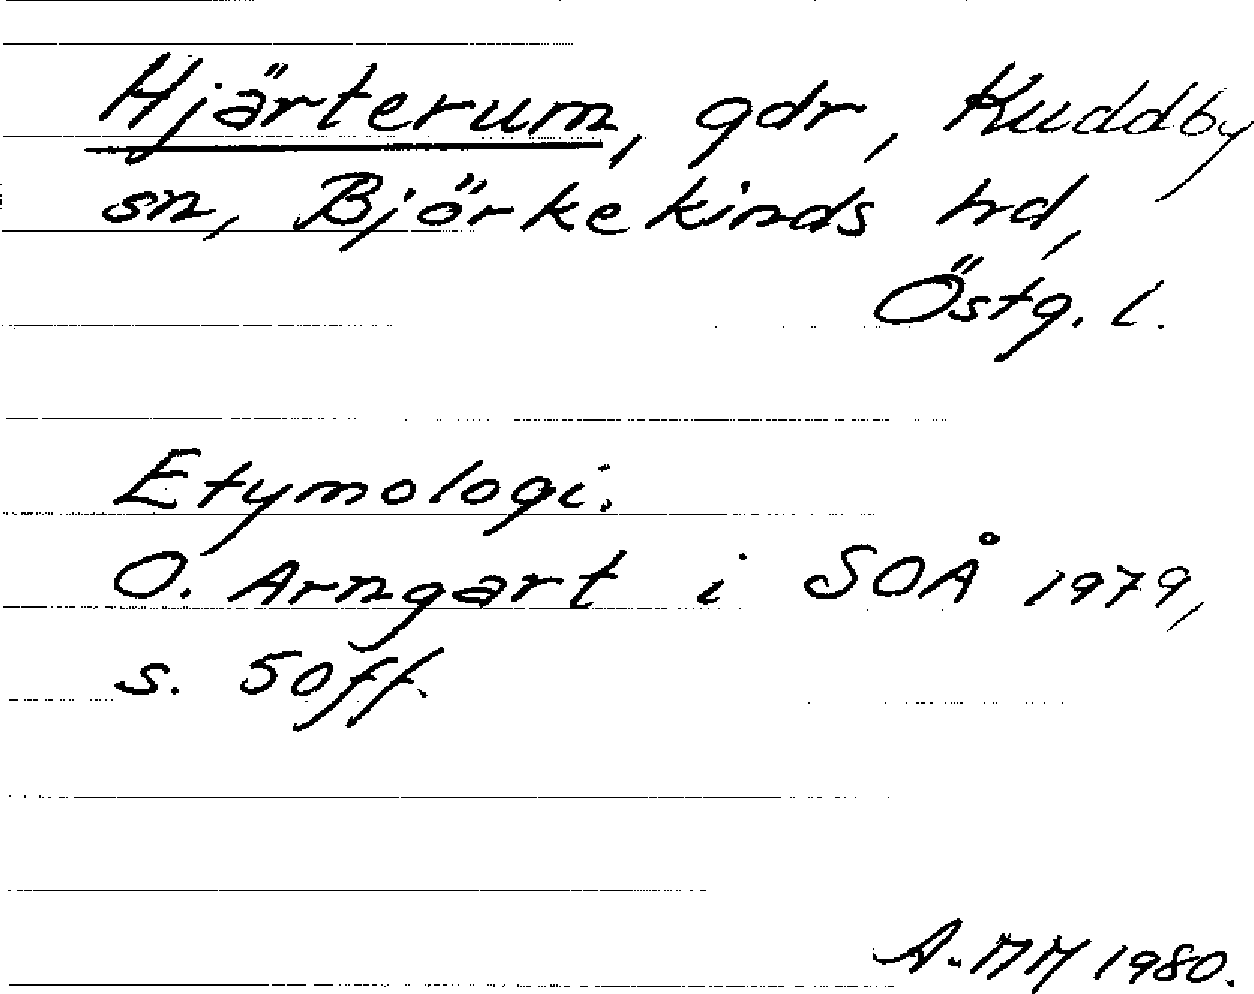 Hjärterum, gdr, Kuddby
sn, Björkekinds hd,
Östg. l.
Etymologi.
O. Arngart i SOÅ 1979,
s. 50ff.
A.-MM 1980.